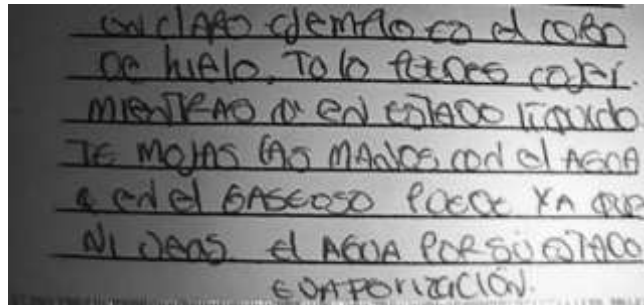 un claro ejemplo es el cubo
de hielo. Tu lo puedes cojer
mientras q en estado liquido
te mojas las manos con el agua
& en el gaseoso puede ya que
ni veas el agua por su estado
evaporización.